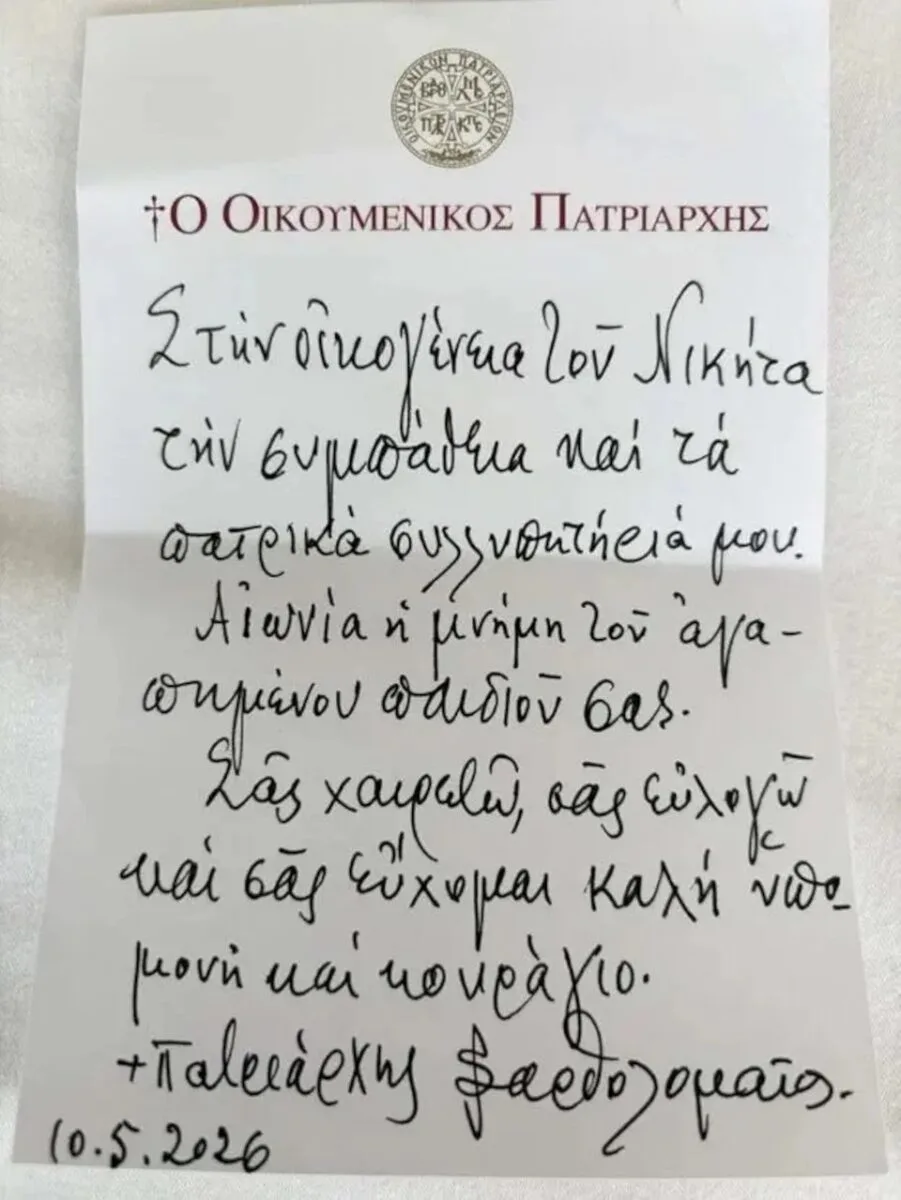 ΟΙΚΟΥΜΕΝΙΚΟΝ ΠΑΤΡΙΑΡΧΕΙΟΝ
†Ο ΟΙΚΟΥΜΕΝΙΚΟΣ ΠΑΤΡΙΑΡΧΗΣ
Στήν οἰκογένεια τοῦ Νικήτα
τήν συμπάθεια καί τά
πατρικά συλλυπητήριά μου.
Αἰωνία ἡ μνήμη τοῦ ἀγα-
πημένου παιδιοῦ σας.
Σᾶς χαιρετῶ, σᾶς εὐλογῶ
καί σᾶς εὔχομαι καλή ὑπο-
μονή καί κουράγιο.
+Πατριάρχης Βαρθολομαῖος.
10.5.2026